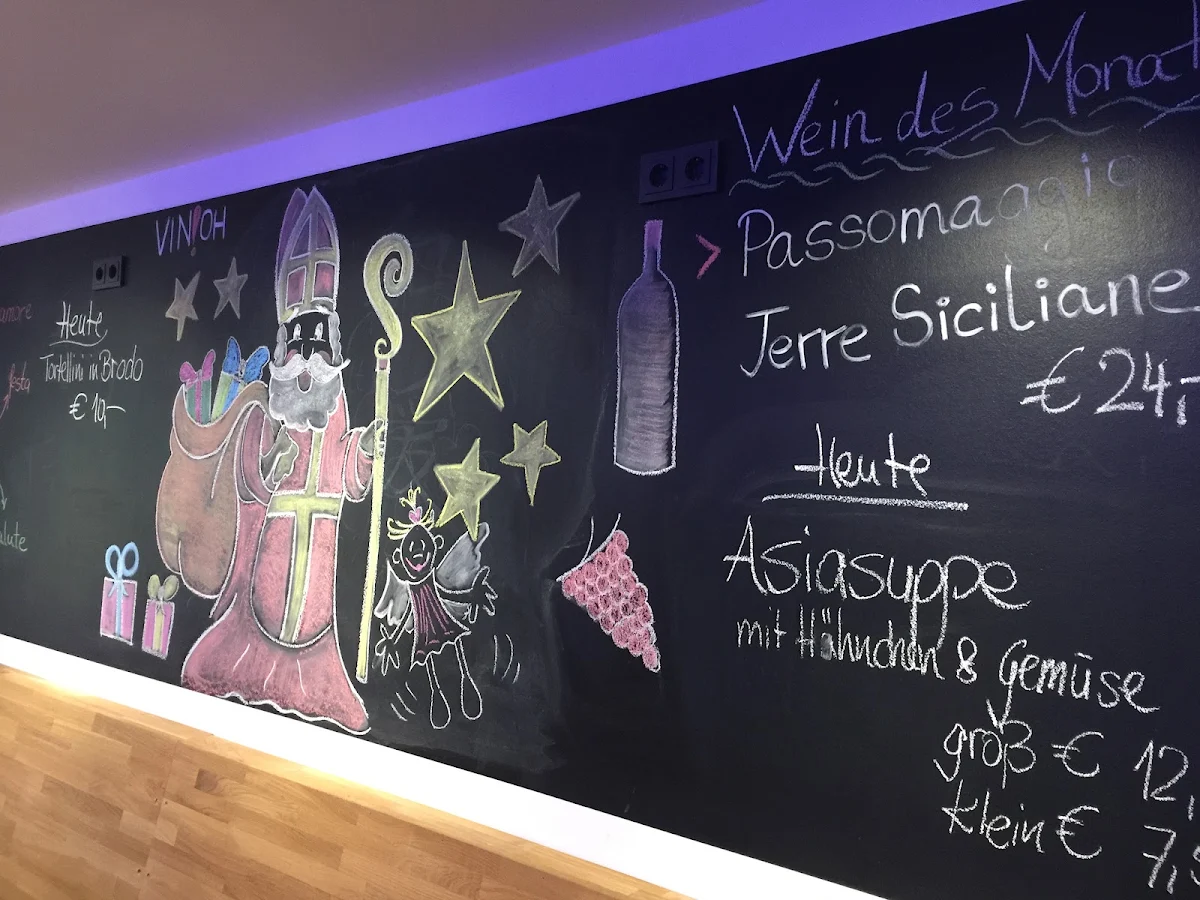 VIN!OH
amore
festa
salute
Heute
Tortellini in Brodo
€ 10,-
Wein des Monat
> Passomaagio
Jerre Siciliane
€ 24,-
Heute
Asiasuppe
mit Hähnchen & Gemüse
groß € 12,
klein € 7,5